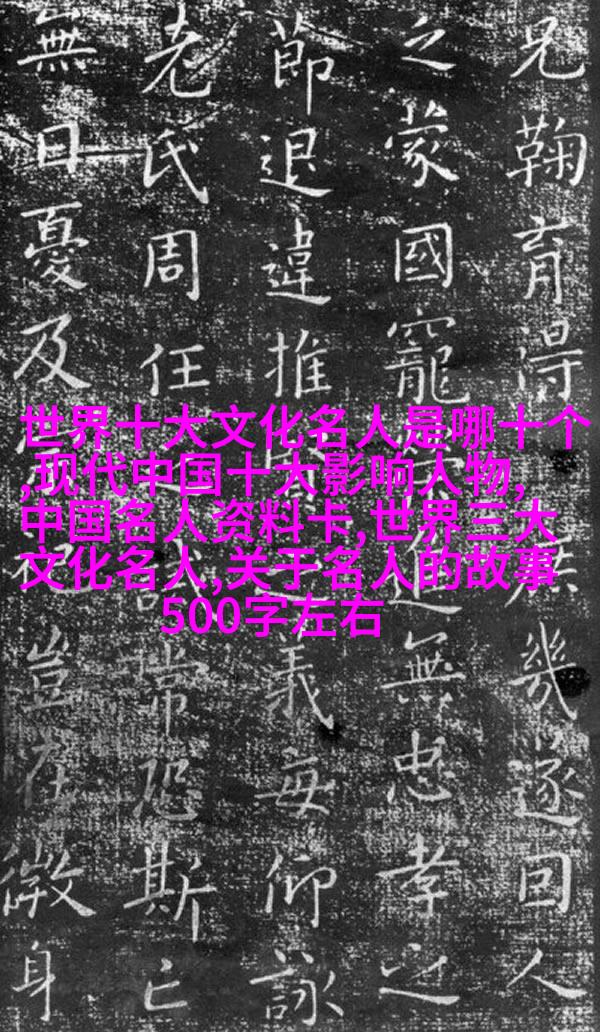 世界十大文化名人是哪十个
,现代中国十大影响人物,
中国名人资料卡,世界三大
文化名人,关于名人的故事
500字左右
兄鞠育淂幾遂回人
之蒙國寵進無忠孝之
節退違推義每仰詠
老氏周任常恐斯亡
無日憂及豈在微身